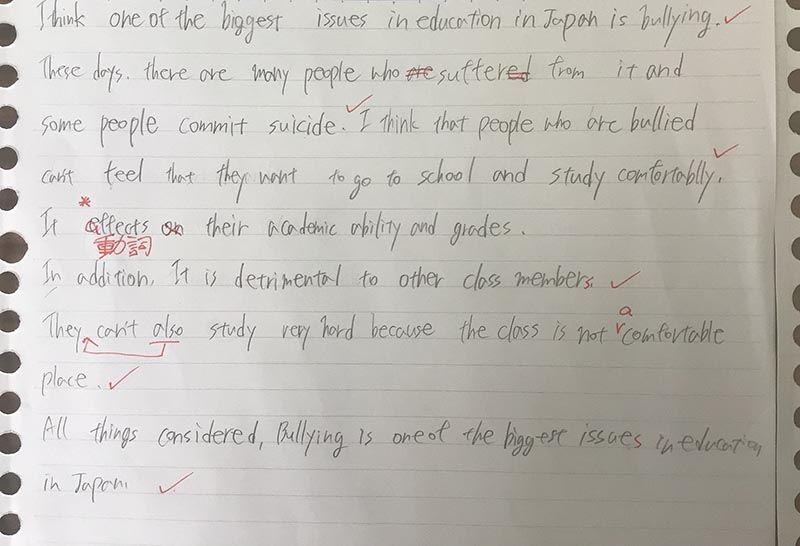 I think one of the biggest issues in education in Japan is bullying.
These days. there are many people who are suffered from it and
some people commit suicide. I think that people who are bullied
can't feel that they want to go to school and study comfortablly.
It * affects on their academic ability and grades.
動詞
In addition, It is detrimental to other class members.
They can't also study very hard because the class is not a comfortable
place.
All things considered, Bullying is one of the biggest issues in education
in Japan.